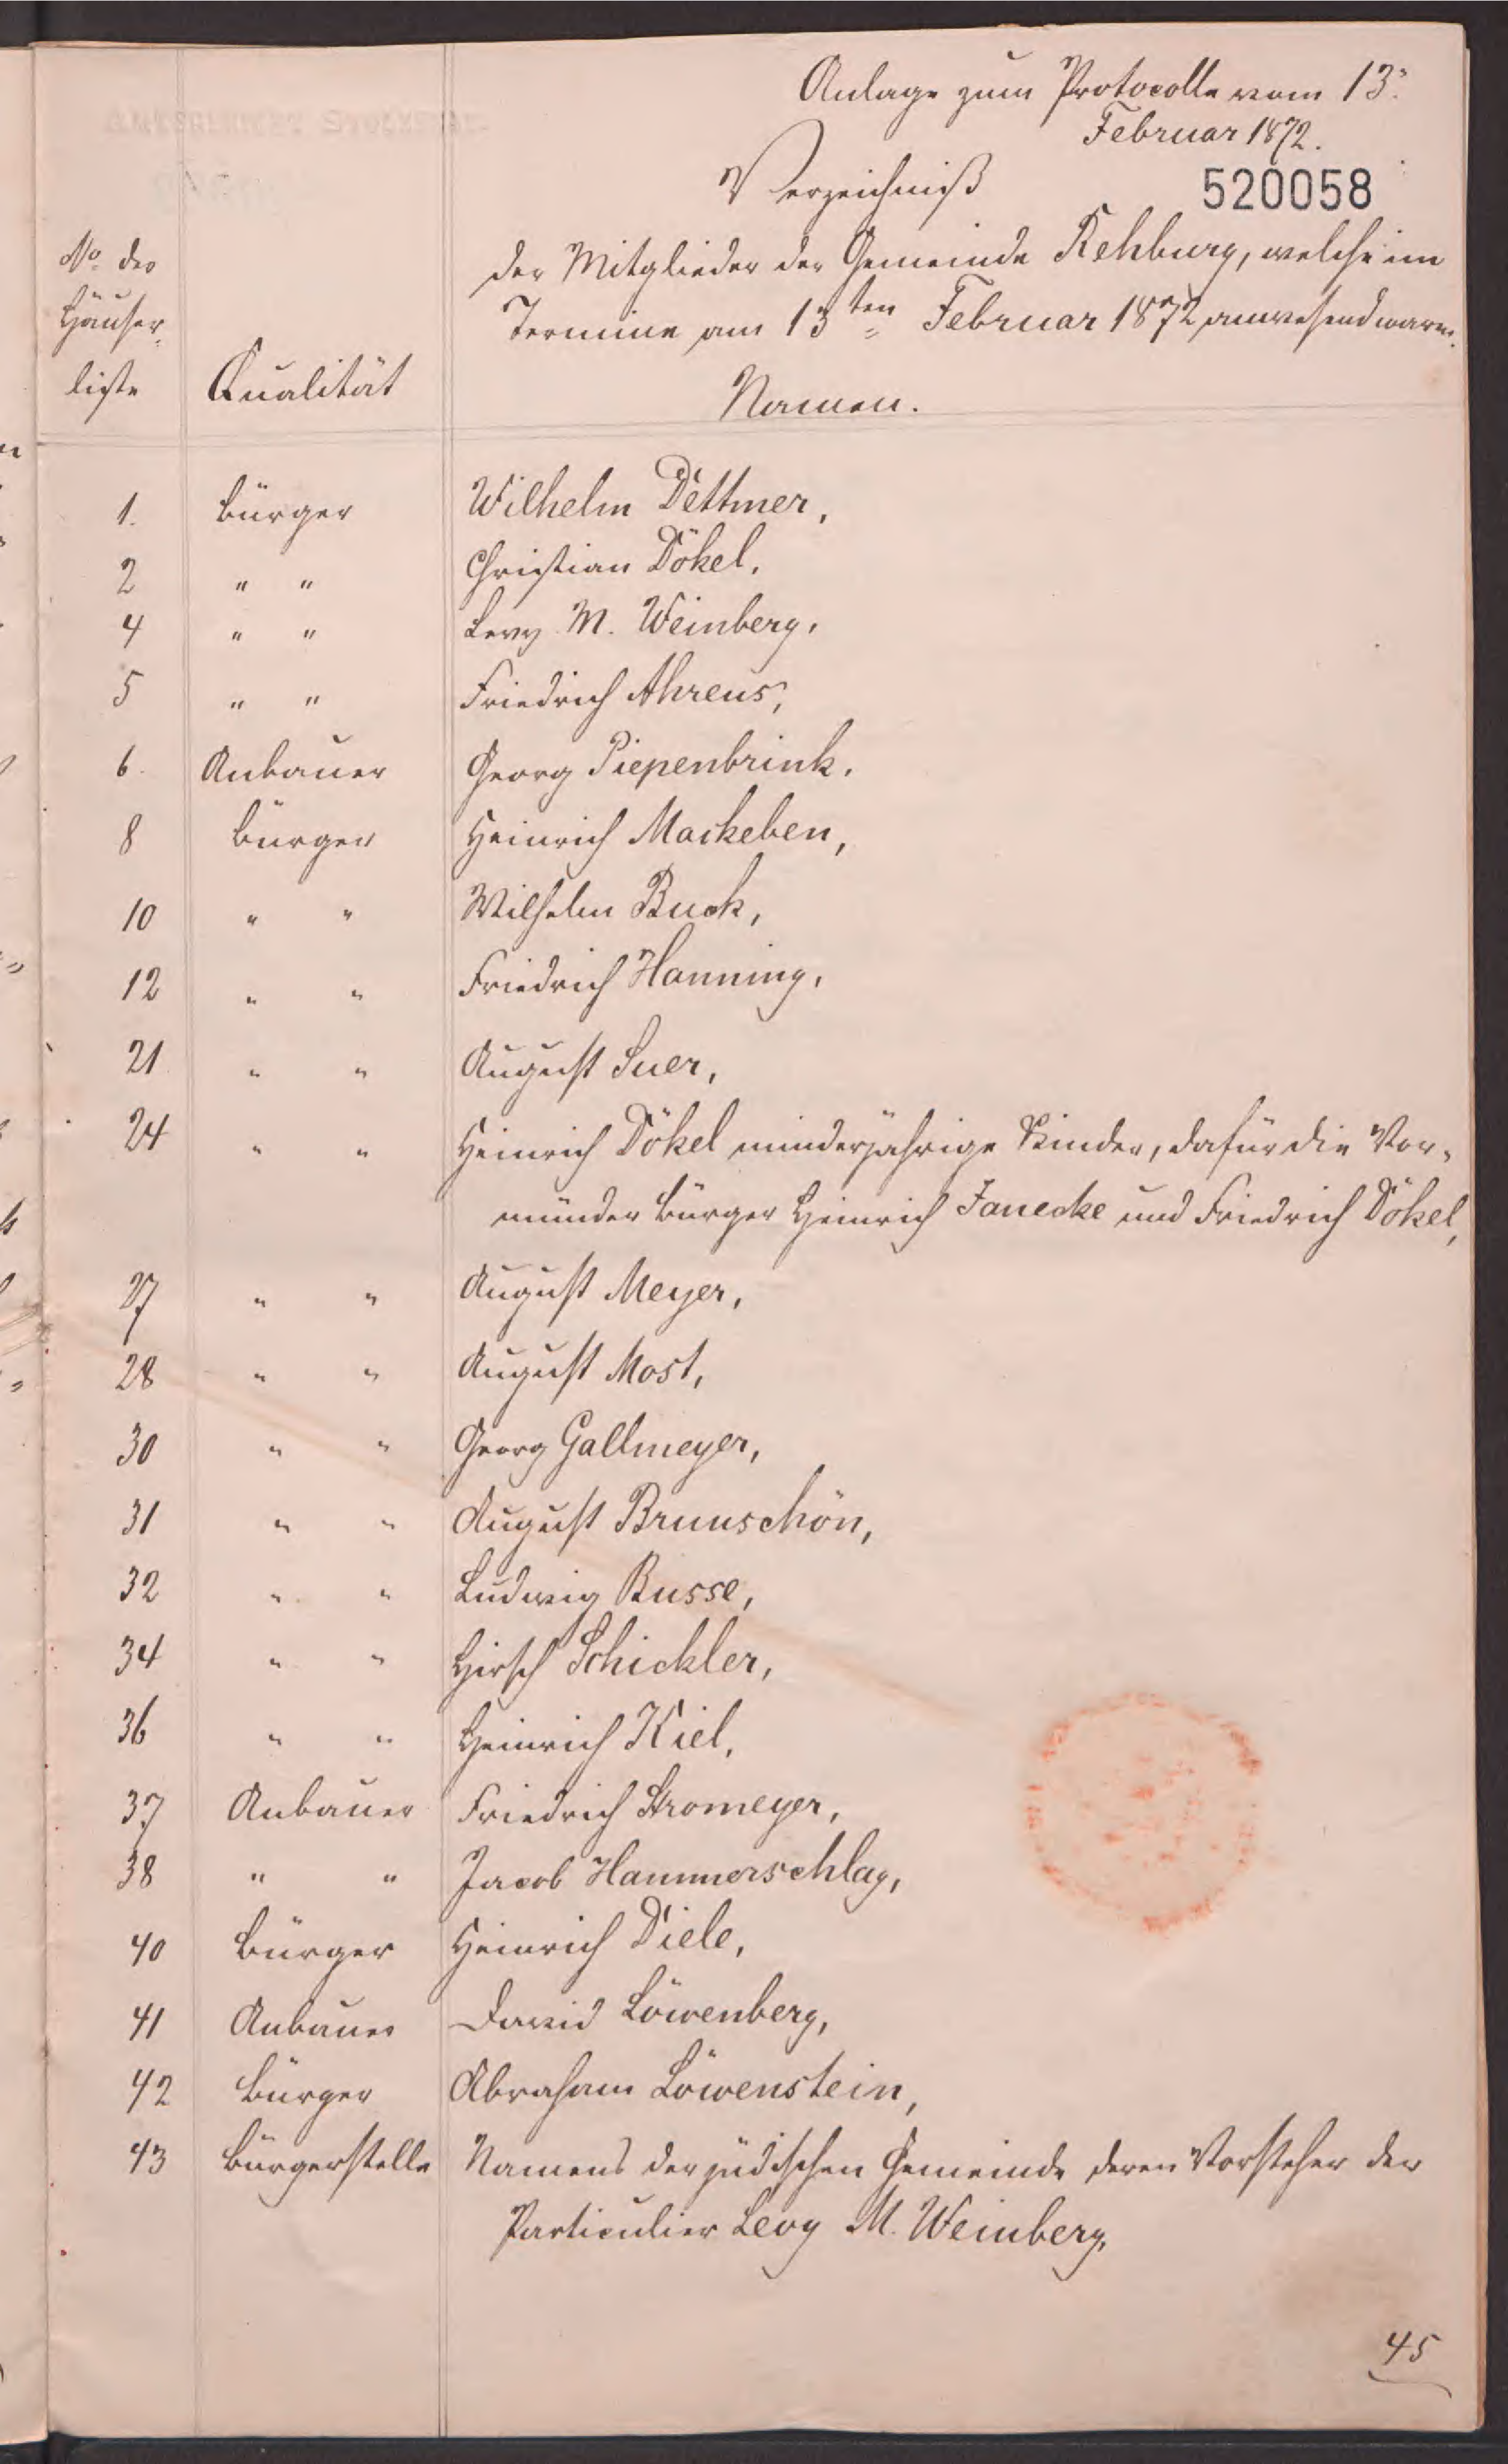 Anlage zum Protocolle vom 13.
Februar 1872.
Verzeichniß
520058
der Mitglieder der Gemeinde Rehburg, welche im
Termine am 13ten Februar 1872 anwesend waren.
No der
Häuser-
liste
Qualität
Namen.
1. Bürger Wilhelm Dettmer,
2 " " Christian Dökel,
4 " " Levy M. Weinberg,
5 " " Friedrich Ahrens,
6. Anbauer Georg Piepenbrink.
8 Bürger Heinrich Mackeben,
10 " " Wilhelm Buck,
12 " " Friedrich Hanning,
21 " " August Suer,
24 " " Heinrich Dökel minderjährige Kinder, dafür die Vor-
münder Bürger Heinrich Janecke und Friedrich Dökel,
27 " " August Meyer,
28 " " August Most,
30 " " Georg Gallmeyer,
31 " " August Brunschön,
32 " " Ludwig Busse,
34 " " Hirsch Schickler,
36 " " Heinrich Kiel,
37 Anbauer Friedrich Stromeyer,
38 " " Jacob Hammerschlag,
40 Bürger Heinrich Diele,
41 Anbauer David Löwenberg,
42 Bürger Abraham Löwenstein,
43 Bürgerstelle Namens der jüdischen Gemeinde deren Vorsteher der
Particulier Levy M. Weinberg,
45